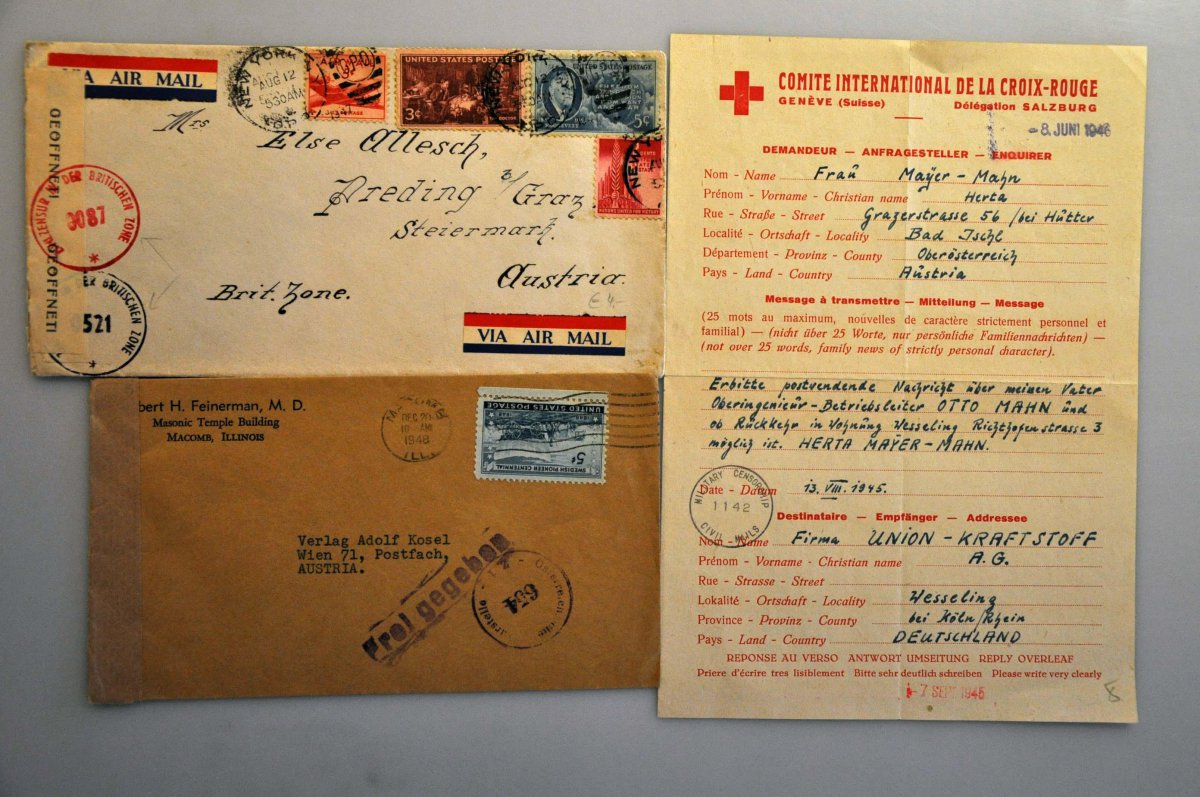 VIA AIR MAIL
NEW YORK
AUG 12
530AM
G.P.O.
UNITED STATES POSTAGE
3¢
5¢
NEW
NATIONS UNITED FOR VICTORY
Mrs
Else Allesch,
Preding b/Graz
Steiermark.
Austria.
Brit. Zone.
€ 4-
VIA AIR MAIL
GEOEFFNET!
GEOEFFNET!
DER BRITISCHEN ZONE
0087
*
ER BRITISCHEN ZONE
521
*
bert H. Feinerman, M. D.
Masonic Temple Building
Macomb, Illinois
MACOMB
DEC 20
10 AM
1948
ILL.
UNITED STATES POSTAGE
5¢
SWEDISH PIONEER CENTENNIAL
Verlag Adolf Kosel
Wien 71, Postfach,
AUSTRIA.
Frei gegeben
654
COMITE INTERNATIONAL DE LA CROIX-ROUGE
GENÈVE (Suisse) Délégation SALZBURG
-8. JUNI 1946
DEMANDEUR — ANFRAGESTELLER — ENQUIRER
Nom - Name Frau Mayer-Mahn
Prénom - Vorname - Christian name Herta
Rue - Straße - Street Grazerstrasse 56 /bei Hütter
Localité - Ortschaft - Locality Bad Ischl
Département - Provinz - County Oberösterreich
Pays - Land - Country Austria
Message à transmettre — Mitteilung — Message
(25 mots au maximum, nouvelles de caractère strictement personnel et
familial) — (nicht über 25 Worte, nur persönliche Familiennachrichten) —
(not over 25 words, family news of strictly personal character).
Erbitte postwendende Nachricht über meinen Vater
Oberingenieur-Betriebsleiter OTTO MAHN und
ob Rückkehr in Wohnung Wesseling Richthofenstrasse 3
möglich ist. HERTA MAYER-MAHN.
Date - Datum 13. VIII. 1945.
MILITARY CENSORSHIP
1142
CIVIL MAILS
Destinataire — Empfänger — Addressee
Nom - Name Firma UNION-KRAFTSTOFF
Prénom - Vorname - Christian name A.G.
Rue - Strasse - Street
Lokalité - Ortschaft - Locality Wesseling
Province - Provinz - County bei Köln/Rhein
Pays - Land - Country DEUTSCHLAND
REPONSE AU VERSO ANTWORT UMSEITUNG REPLY OVERLEAF
Priere d'écrire tres lisiblement Bitte sehr deutlich schreiben Please write very clearly
-7 SEPT 1945
8